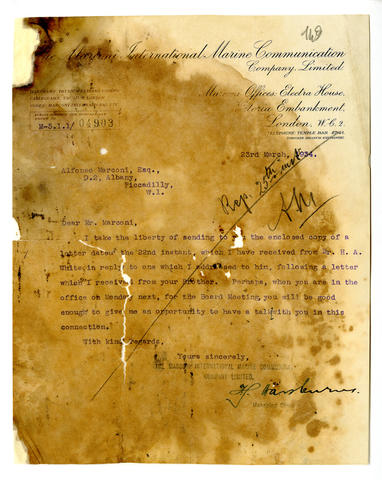 149
The Marconi International Marine Communication
Company, Limited.
Marconi Offices, Electra House,
Victoria Embankment,
London, W.C.2.
TELEPHONE: TEMPLE BAR 4321.
M-3.1.1/04903
23rd March, 1934.
Alfonso Marconi, Esq.,
D.2, Albany,
Piccadilly,
W.1.
Rep. 25th inst
AM
Dear Mr. Marconi,
I take the liberty of sending to you the enclosed copy of a
letter dated the 22nd instant, which I have received from Mr. H. A.
White, in reply to one which I addressed to him, following a letter
which I received from your Brother. Perhaps, when you are in the
office on Monday next, for the Board Meeting, you will be good
enough to give me an opportunity to have a talk with you in this
connection.
With kind regards,
Yours sincerely,
THE MARCONI INTERNATIONAL MARINE COMMUNICATION
COMPANY, LIMITED.